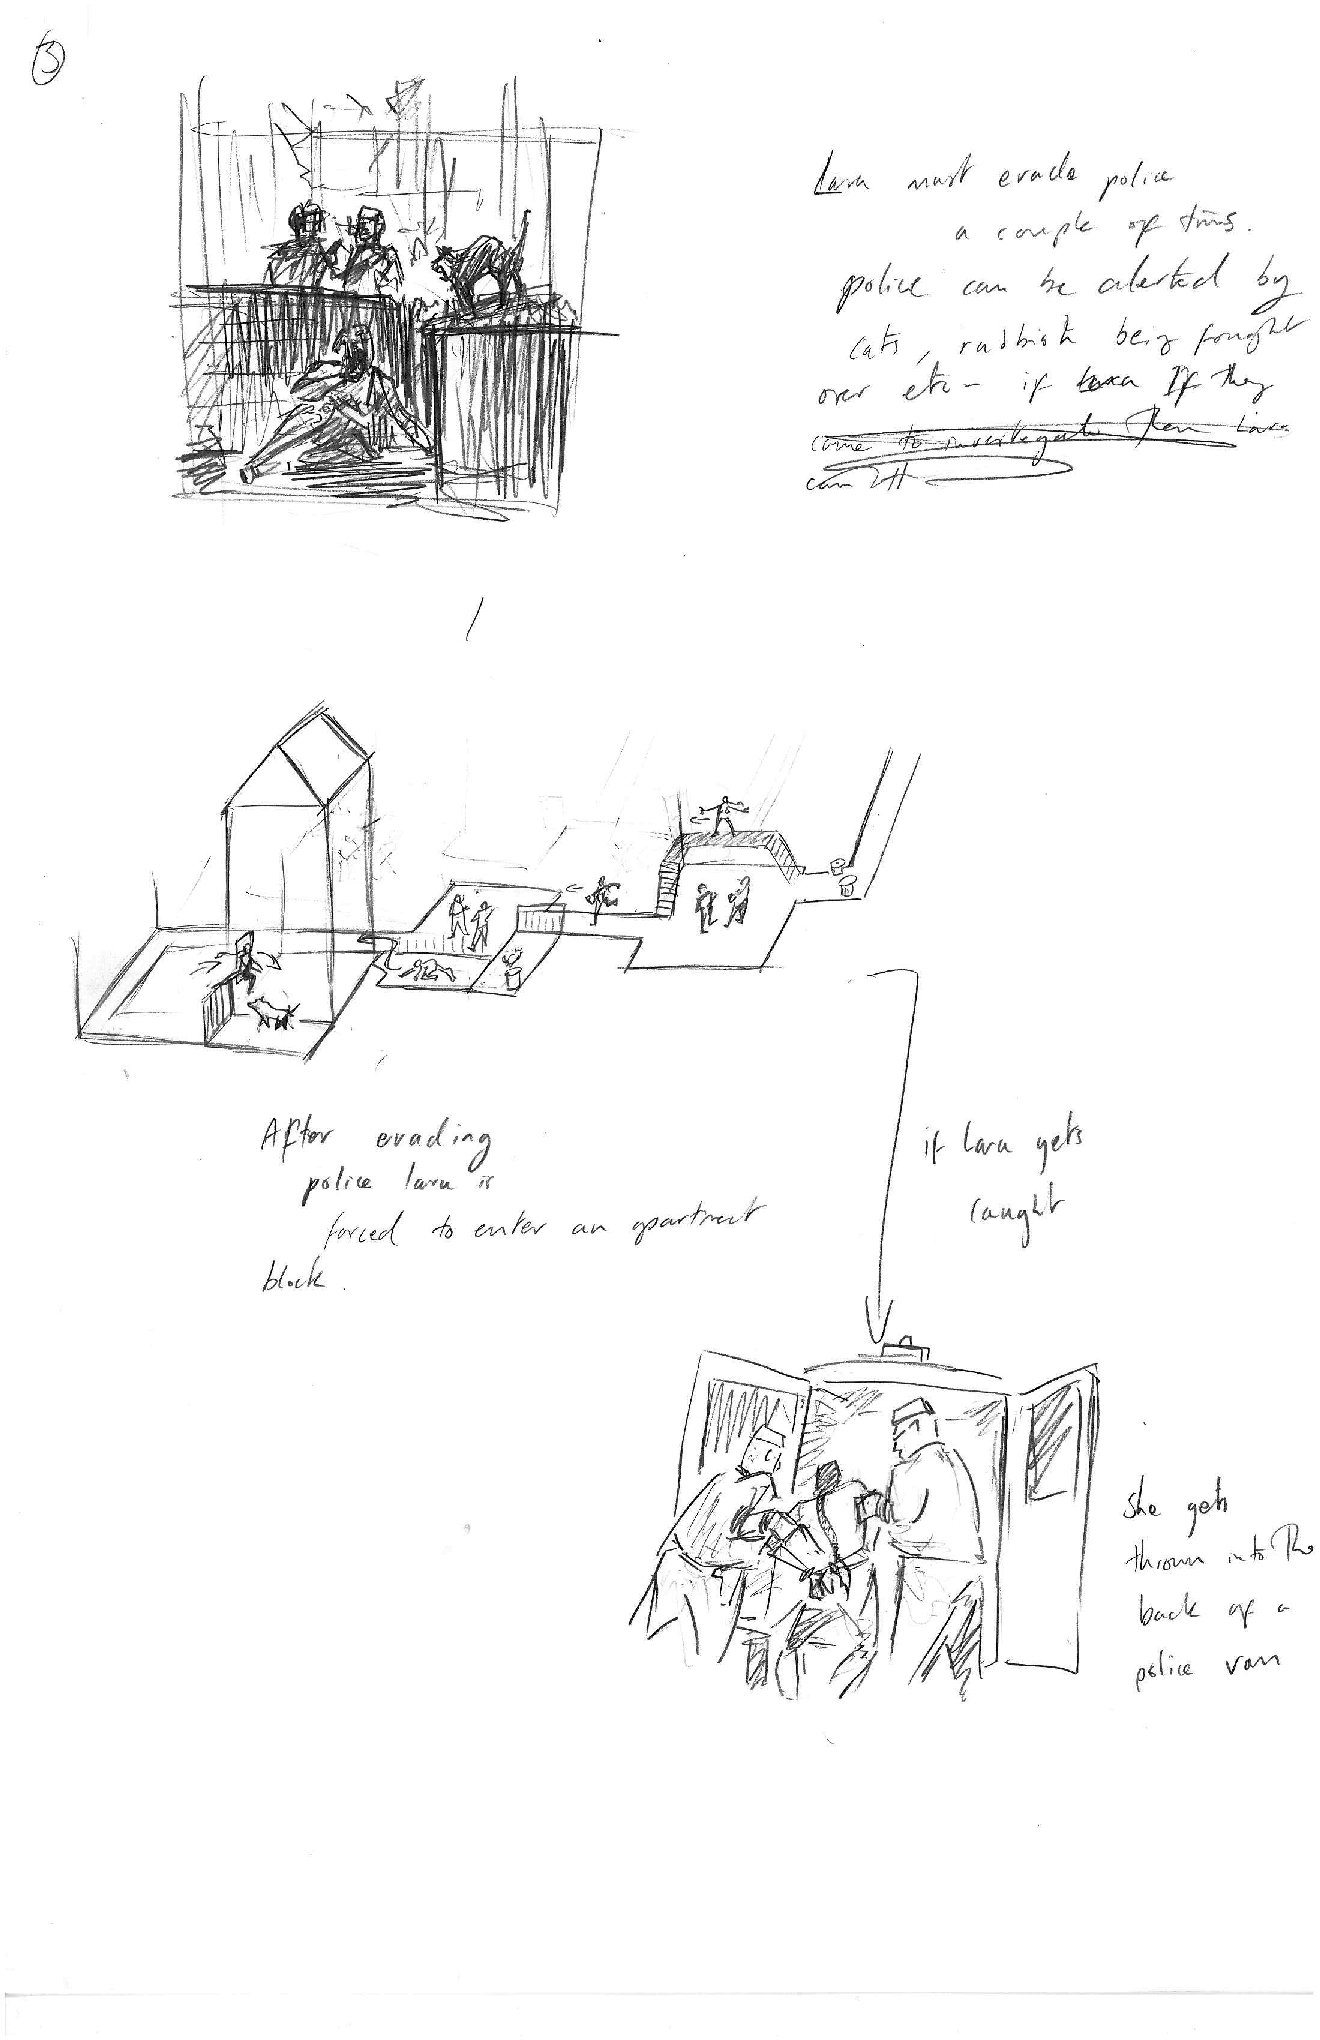 3
Lara must evade police
a couple of times.
police can be alerted by
cats, rubbish being fought
over etc - if Lara If they
come to investigate then Lara
can
After evading
police lara is
forced to enter an apartment
block.
if Lara gets
caught
She gets
thrown into the
back of a
police van